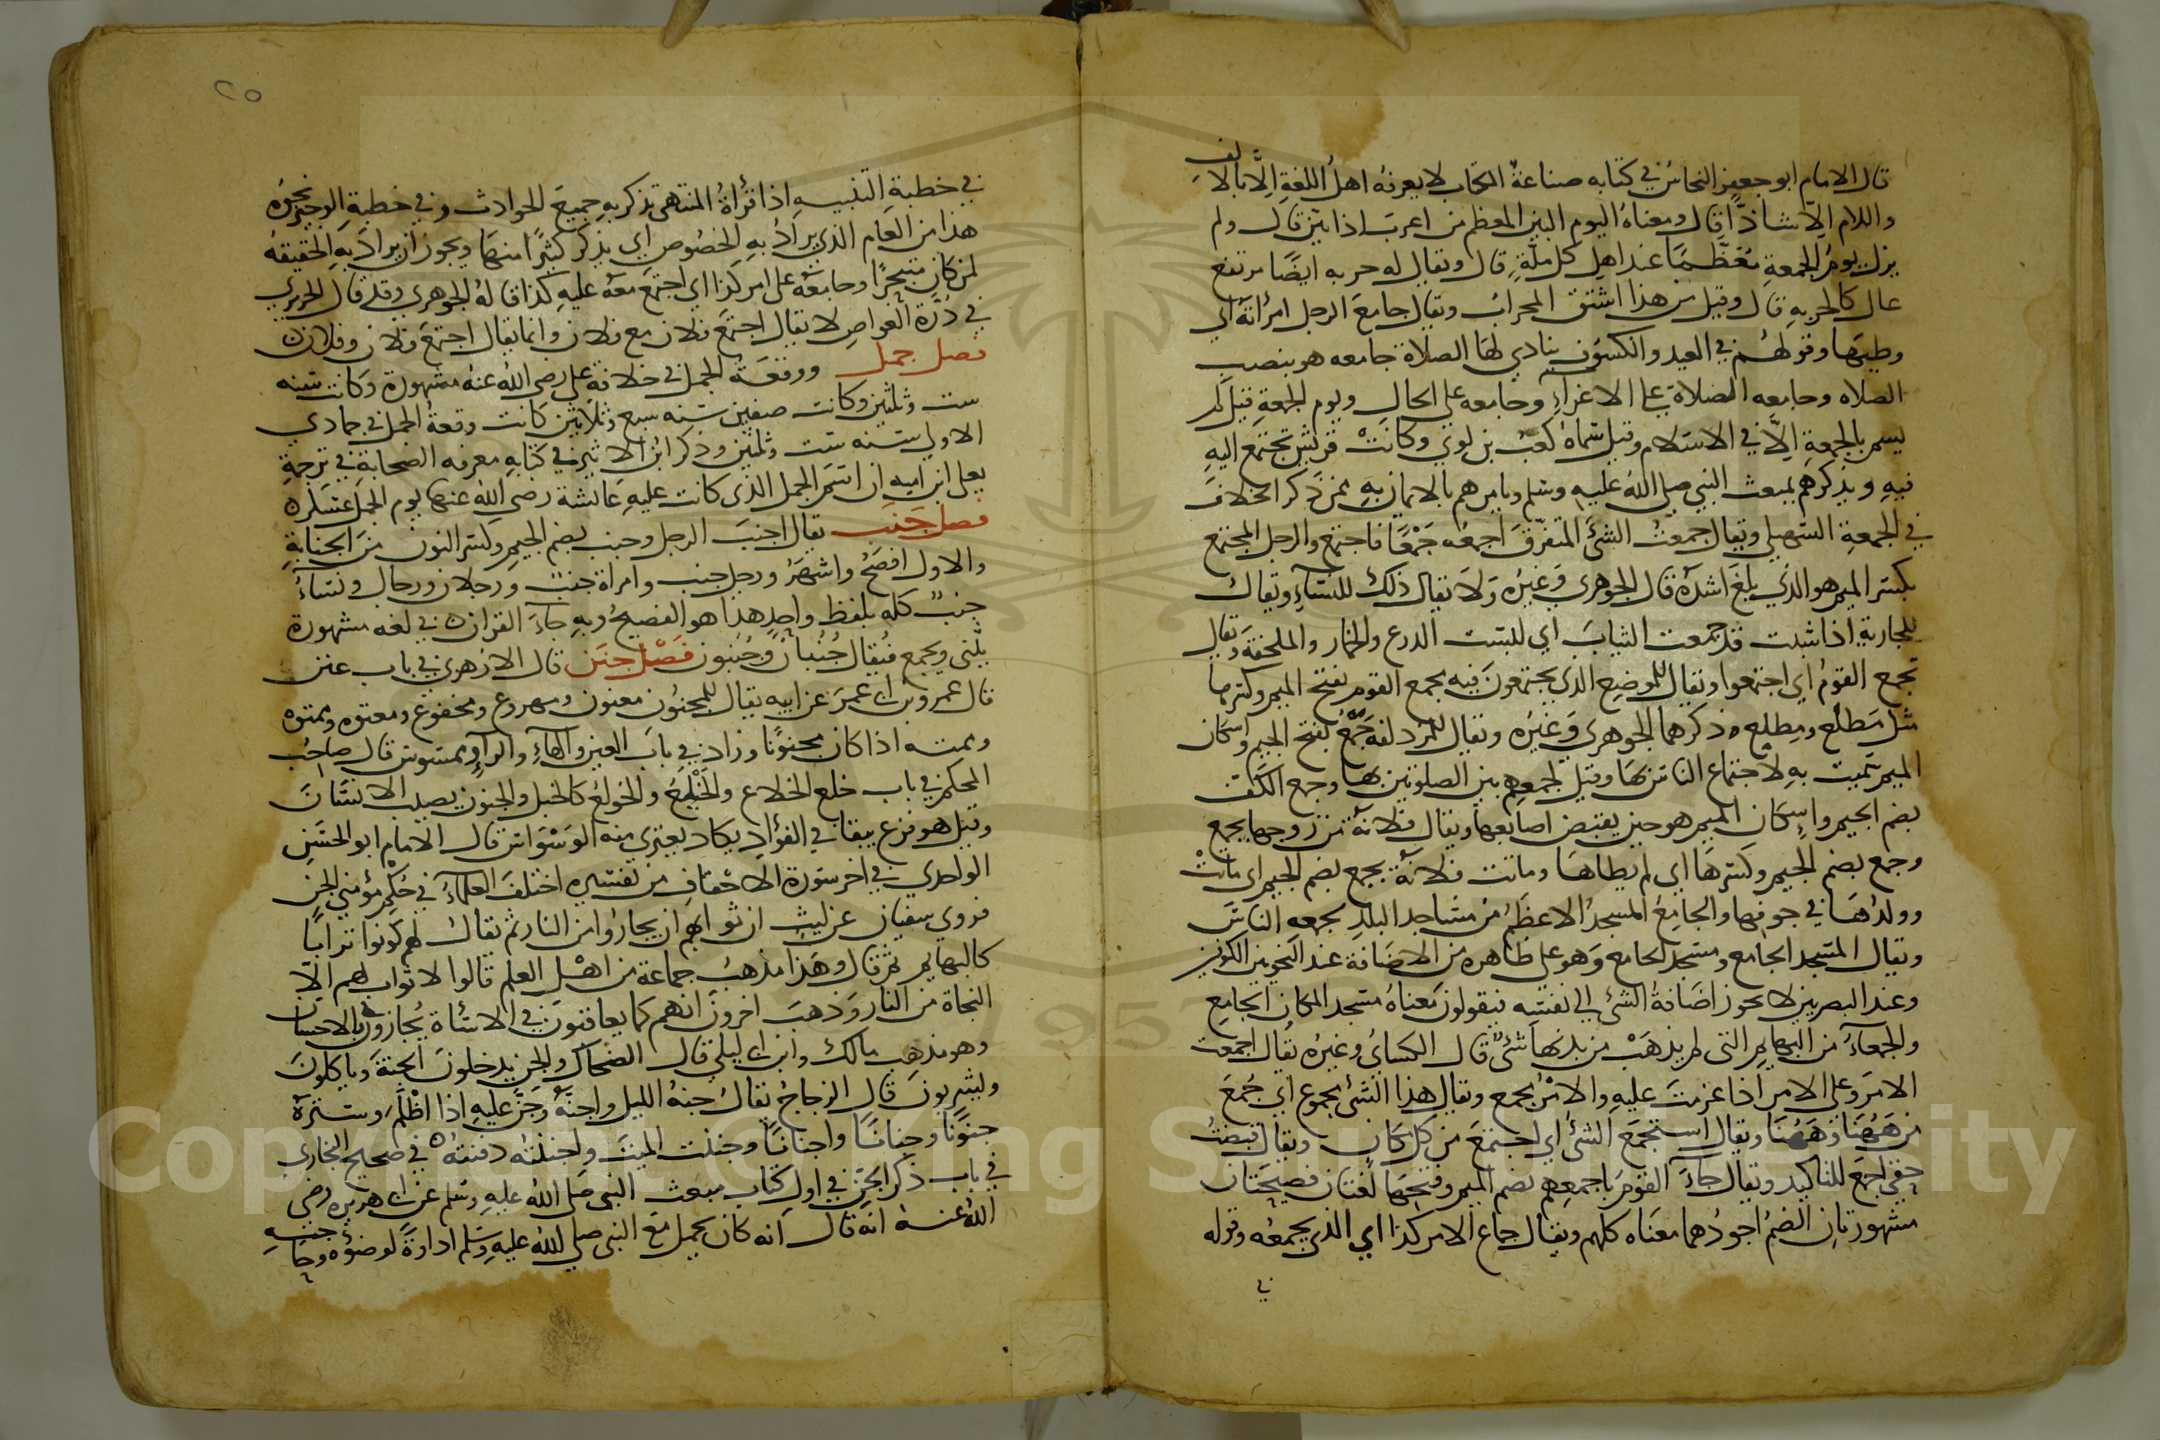 قال الامام ابو جعفر النحاس في كتابه صناعة الكتاب لا يعرفه اهل اللغة الا بالالف
واللام الا شاذا قال ومعناه اليوم البين المعظم من اعرب اذا بين قال ولم
يزل يوم الجمعة معظما عند اهل كل ملة قال ويقال له حربه ايضا مرتفع
عال كالحربه قال وقيل من هذا اشتق المحراب ويقال جامع الرجل امرأته اي
وطيها وقولهم في العيد والكسوف ينادي لها الصلاة جامعه هو بنصب
الصلاه وجامعه الصلاة على الاغراء وجامعه على الحال ويوم الجمعة قيل لم
يسم بالجمعة الا في الاسلام وقيل سماه كعب بن لوي وكانت قريش تجتمع اليه
فيه ويذكرهم بمبعث النبي صلى الله عليه وسلم ويامرهم بالايمان به ممن ذكر الخلاف
في الجمعة السهيلي ويقال جمعت الشئ المتفرق اجمعه جمعا فاجتمع والرجل المجتمع
بكسر الميم هو الذي بلغ اشده قال الجوهري وغيره ولا يقال ذلك للنساء ويقال
للجارية اذا شبت قد جمعت الثياب اي لبست الدرع والخمار والملحفة ويقال
تجمع القوم اي اجتمعوا ويقال للموضع الذي يجتمعون فيه مجمع القوم بفتح الميم وكسرها
مثل مطلع ومطلع ذكرهما الجوهري وغيره ويقال للمزدلفة جمع بفتح الجيم واسكان
الميم سميت به لاجتماع الناس بها وقيل لجمعهم بين الصلوتين بها وجمع الكف
بضم الجيم واسكان الميم هو حين يقبض اصابعها ويقال فلانة من زوجها بجمع
وجمع بضم الجيم وكسرها اي لم يطاها وماتت فلانة بجمع بضم الجيم اي ماتت
وولدها في جوفها والجامع المسجد الاعظم من مساجد البلد بجمعه الناس
ويقال المسجد الجامع ومسجد الجامع وهو على ظاهره من الاضافة عند النحويين الكوفيين
وعند البصريين لا يجوز اضافة الشئ الى نفسه فيقولون معناه مسجد المكان الجامع
والجمعاء من البهايم التي لم يذهب من بدنها شئ قال الكساي وغيره يقال اجمعت
الامر وعلى الامر اذا عزمت عليه والامر مجمع ويقال هذا الشئ مجموع اي جمع
من ههنا وههنا ويقال استجمع الشئ اي اجتمع من كل مكان ويقال قبضت
حقي اجمع للتاكيد ويقال جاء القوم باجمعهم بضم الميم وفتحها لغتان فصيحتان
مشهورتان الضم اجودهما معناه كلهم ويقال جماع الامر كذا اي الذي يجمعه وقوله
في
٢٥
في خطبة التنبيه اذا قرأه المنتهى تذكر به جميع الحوادث وفي خطبة الوجيز نحوه
هذا من العام الذي يراد به الخصوص اي يذكر كثيرا منها ويجوز ان يراد به الحقيقه
لمن كان متبحرا وجامعه على امر كذا اي اجتمع معه عليه كذا قاله الجوهري وقد قال الحريري
في درة الغواص لا يقال اجتمع فلان مع فلان وانما يقال اجتمع فلان وفلان
فصل جمل ووقعة الجمل في خلافة علي رضي الله عنه مشهورة وكانت سنه
ست وثلثين وكانت صفين سنه سبع وثلاثين كانت وقعة الجمل في جمادي
الاولى سنه ست وثلثين وذكر ابن الاثير في كتابه معرفه الصحابة في ترجمة
يعلى ابن اميه ان اسم الجمل الذي كانت عليه عائشة رضي الله عنها يوم الجمل عسكره
فصل جنب يقال اجنب الرجل وجنب بضم الجيم وكسر النون من الجنابة
والاول افصح واشهر ورجل جنب وامراة جنب ورجلان ورجال ونساء
جنب كله بلفظ واحد هذا هو الفصيح وبه جاء القران وفي لغه مشهورة
يثنى ويجمع فيقال جنبان وجنبون فصل جنن قال الازهري في باب عنن
قال عمرو بن ابي عمر عن ابيه يقال للمجنون معنون ومهروع ومخفوع ومعتوه وممتوه
وممته اذا كان مجنونا وزاد في باب العين والهاء والراء ممسوس قال صاحب
المحكم في باب خلع الخلاع والخيلع والخولع كالخبل والجنون يصيب الانسان
وقيل هو فزع يبقا في الفؤاد يكاد يعتري منه الوسواس قال الامام ابو الحسن
الواحدي في اخر سورة الاحقاف من تفسيره اختلف العلماء في حكم مؤمني الجن
فروي سفيان عن ليث ان ثوابهم ان يجاروا من النار ثم يقال لهم كونوا ترابا
كالبهايم ثم قال وهذا مذهب جماعة من اهل العلم قالوا لا ثواب لهم الا
النجاة من النار وذهب اخرون انهم كما يعاقبون في الاساة يجازون بالاحسان
وهو مذهب مالك وابن ابي ليلى قال الضحاك والجن يدخلون الجنة وياكلون
ويشربون قال الزجاج يقال جنه الليل واجنه وجن عليه اذا اظلم وستره
جنونا وجنانا واجنانا وجننت الميت واجننته دفنته في صحيح البخاري
في باب ذكر الجن في اول كتاب مبعث النبي صلى الله عليه وسلم عن ابي هريره رضي
الله عنه انه قال انه كان يحمل مع النبي صلى الله عليه وسلم اداوة لوضوه وحاجته
Copyright © King Saud University
1957